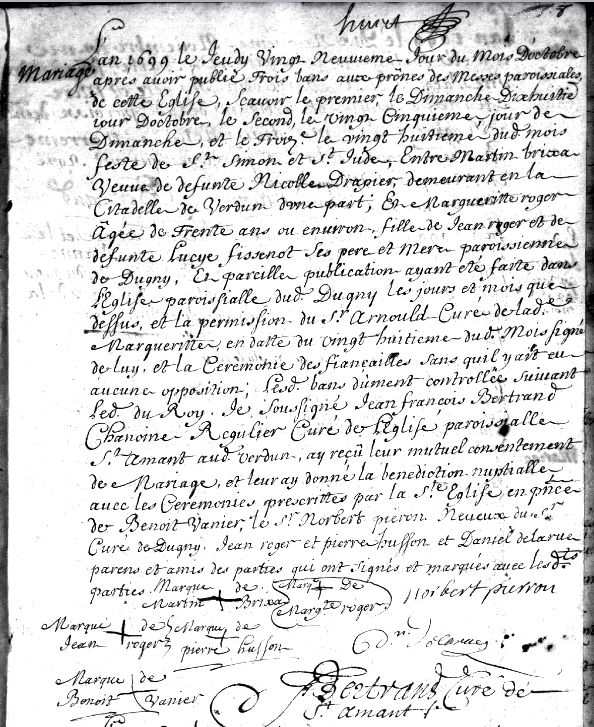 huict
L'an 1699 le Jeudy Vingt Neuvieme Jour du Mois Doctobre
Mariage
apres avoir publié Trois bans aux prônes des Messes paroissiales,
de cette Eglise, scavoir le premier, le Dimanche Dixhuitie
iour Doctobre, le Second, le vingt Cinquieme, jour de
Dimanche, et le Troize. le vingt huitieme dud. mois
feste de St. Simon et St. Jude, Entre Martin brixa
Veuve de defunte Nicolle Drapier, demeurant en la
Citadelle de Verdun d'une part; Et Margueritte roger
Âgée de Trente ans ou environ, fille de Jean roger et de
defunte Lucye fissenot Ses pere et Mere paroissienne
de Dugny, En pareille publication ayant eté faite dans
l'Eglise paroissialle dud. Dugny les jours et mois que
dessus, et la permission du Sr. Arnould Curé de lad.
Margueritte, en datte du vingt huitieme dud. Mois signé
de luy, et la Ceremonie des fiançailles sans quil y ait eu
aucune opposition, lesd. bans dûment controllée suivant
l'ed. du Roy. Je Soussigné Jean françois Bertrand
Chanoine Regulier Curé de l'Eglise paroissialle
St. amant aud. verdun, ay reçû leur mutuel consentement
de Mariage, et leur ay donné la benediction nuptialle
avec les Ceremonies prescrittes par la Ste. Eglise en pnce
de Benoit Vanier, le Sr. Norbert pieron Neveux du Sr
Curé de Dugny. Jean roger et pierre husson et Daniel delarue
parens et amis des parties qui ont signés et marqués avec lesd.
parties. Marque de Marq. De
Martin Brixa Margte roger Norbert pierron
Marque de Marque de
Jean roger pierre husson Dn. Delarue
Marque de
Benoit Vanier
F Bertrand Curé de
St. amant